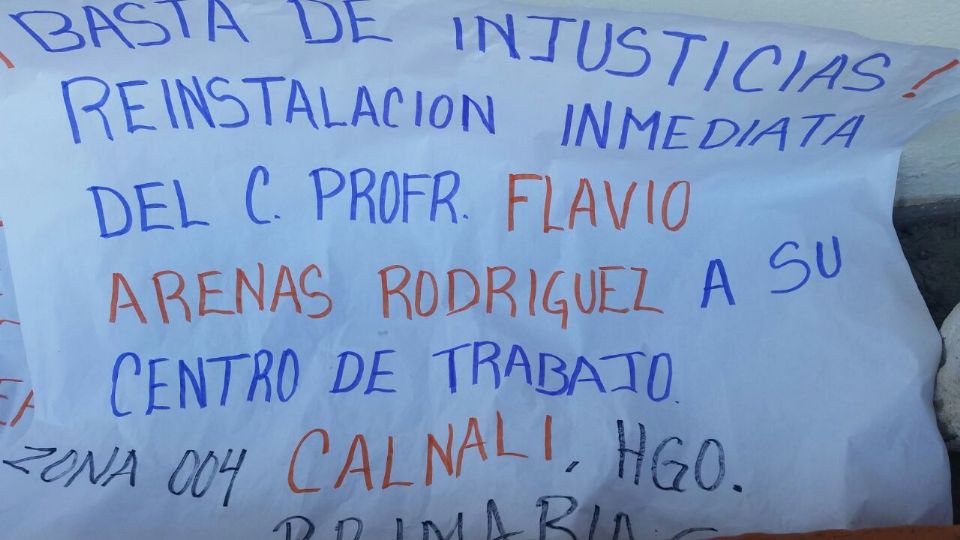 ¡BASTA DE INJUSTICIAS!
REINSTALACION INMEDIATA
DEL C. PROFR. FLAVIO
ARENAS RODRIGUEZ A SU
CENTRO DE TRABAJO.
ZONA 004 CALNALI, HGO.
PRIMARIAS